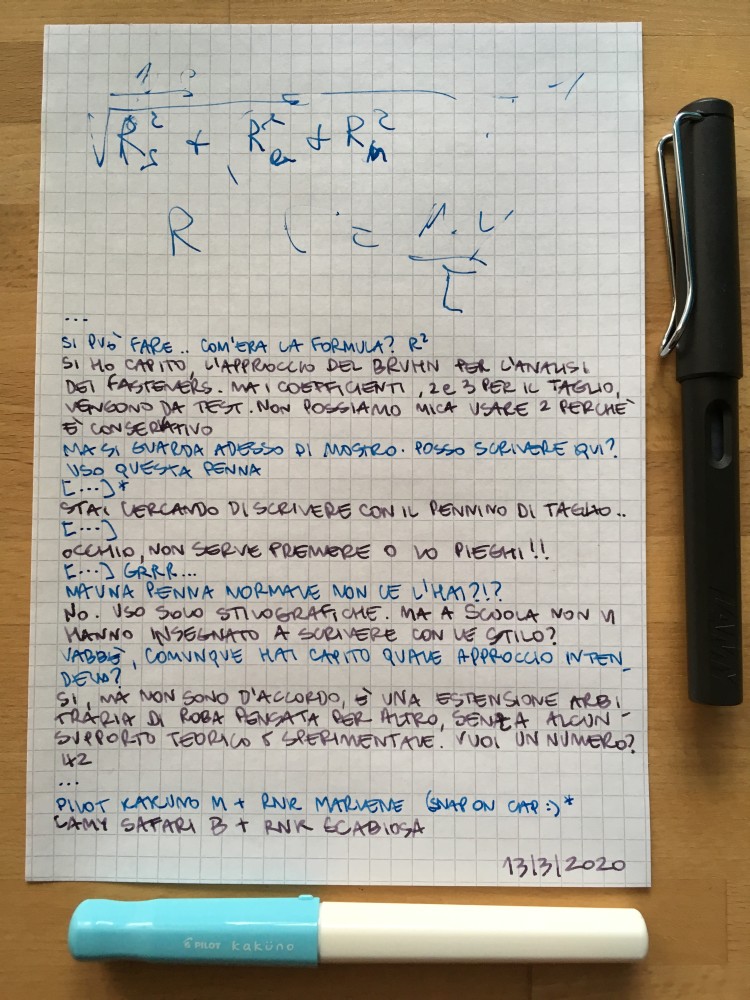 1.0
√Rs² + Ra² + Rm² - 1
R
...
SI PUÒ FARE .. COM'ERA LA FORMULA? R²
SI HO CAPITO, L'APPROCCIO DEL BRUHN PER L'ANALISI
DEI FASTENERS. MA I COEFFICIENTI, 2 e 3 PER IL TAGLIO,
VENGONO DA TEST. NON POSSIAMO MICA USARE 2 PERCHÈ
È CONSERVATIVO
MA SI GUARDA ADESSO DI MOSTRO. POSSO SCRIVERE QUI?
USO QUESTA PENNA
[...]*
STAI CERCANDO DI SCRIVERE CON IL PENNINO DI TAGLIO..
[...]
OCCHIO, NON SERVE PREMERE O LO PIEGHI!!
[...] GRRR...
MA UNA PENNA NORMALE NON CE L'HAI?!?
NO. USO SOLO STILOGRAFICHE. MA A SCUOLA NON VI
HANNO INSEGNATO A SCRIVERE CON LE STILO?
VABBÈ, COMUNQUE HAI CAPITO QUALE APPROCCIO INTEN_
DEVO?
SI, MA NON SONO D'ACCORDO, È UNA ESTENSIONE ARBI
TRARIA DI ROBA PENSATA PER ALTRO, SENZA ALCUN -
SUPPORTO TEORICO E SPERIMENTALE. VUOI UN NUMERO?
42
...
PILOT KAKUNO M + RNK MARLENE (SNAP ON CAP :)*
LAMY SAFARI B + RNK SCABIOSA
13/3/2020
LAMY
PILOT kaküno